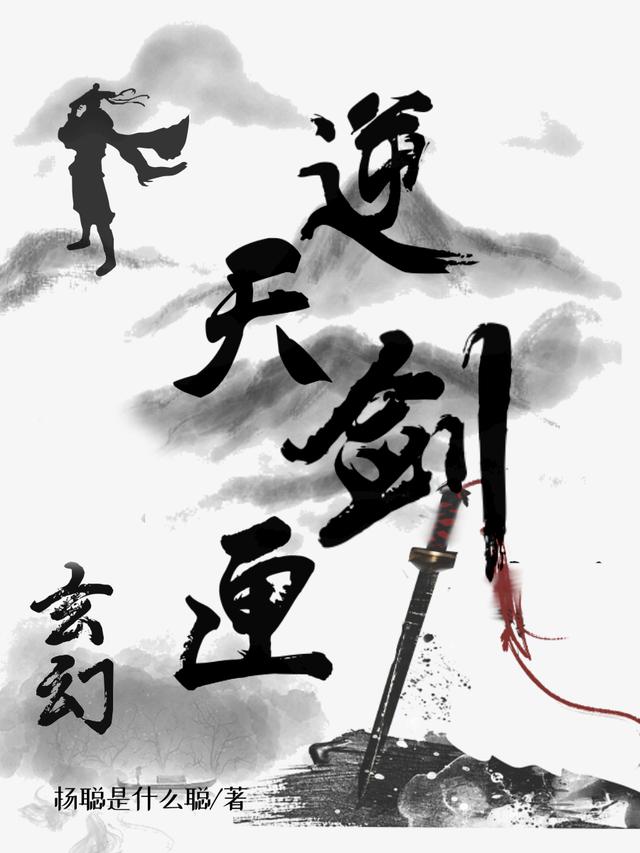 逆天剑匣
玄幻
杨聪是什么聪/著